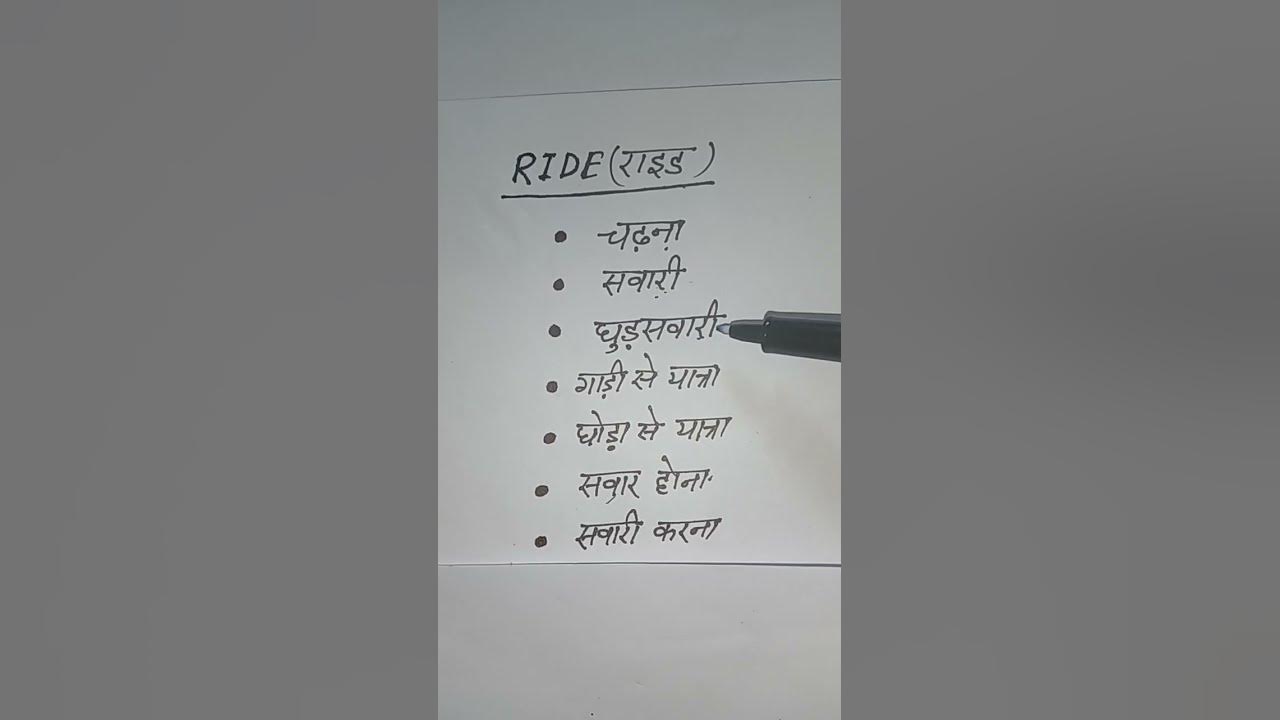 RIDE (राइड)
• चढ़ना
• सवारी
• घुड़सवारी
• गाड़ी से यात्रा
• घोड़ा से यात्रा
• सवार होना
• सवारी करना